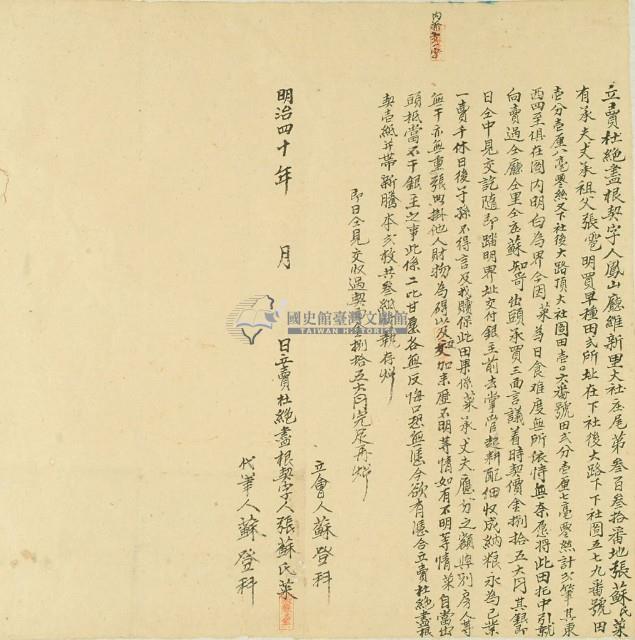 內添叁字
立賣杜絕盡根契字人鳳山廳維新里大社庄尾第叁百叁拾番地張蘇氏菜
有承夫丈承祖父張 明買早種田弍所址在下社後大路下下社園五七九番號田
壹分壹厘六毫零絲又下社後大路頂大社園田壹〇六番號田弍分壹厘七毫零絲計弍筆其東
西四至俱在圖內明白為界今因菜為日食难度無所依恃無奈愿將此田托中引就
向賣過仝廳仝里仝庄蘇知哥出頭承買三面言議着時契價金捌拾五大円其銀即
日仝中見交訖隨即踏明界址交付銀主前去掌管起耕配佃收成納粮永為己業
一賣千休日後子孫不得言及找贖保此田果係菜承丈夫應分之額與別房人等
無干亦無重張典掛他人財物為碍以及交加来歴不明等情如有不明等情菜自當出
頭抵當不干銀主之事此係二比甘愿各無反悔口恐無憑今欲有憑合立賣杜絕盡根
契壹紙并帶新謄本弍枚共叁紙 執存炤
即日仝見交收過契 金捌拾五大円完足再炤
立會人蘇登科
明治四十年 月 日立賣杜絕盡根契字人張蘇氏菜
代筆人蘇登科
國史館臺灣文獻館
TAIWAN HISTORICA